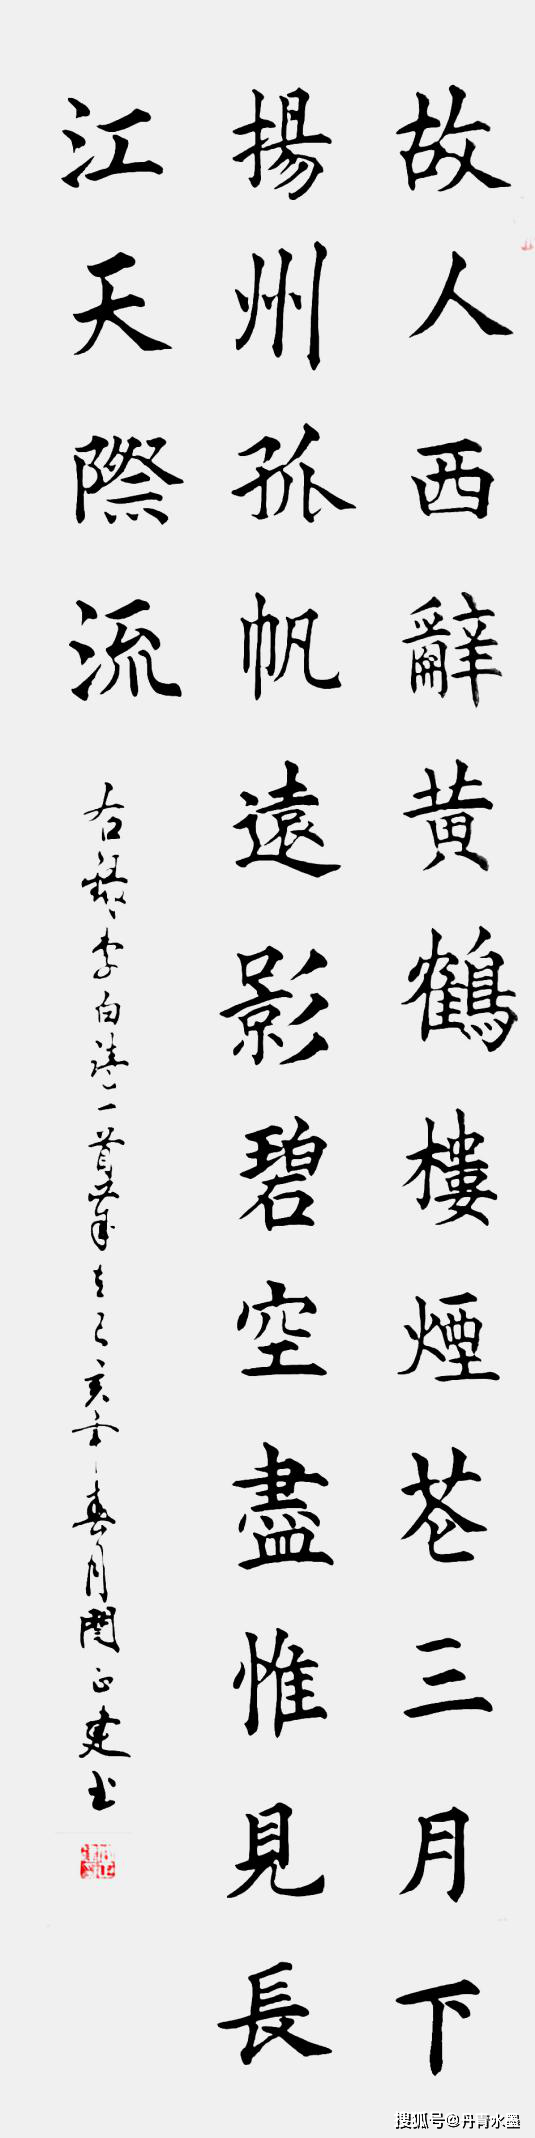 故人西辭黄鶴樓煙花三月下
揚州孤帆遠影碧空盡惟見長
江天際流
右錄李白詩一首歲在己亥年春月正建书
搜狐号@丹青水墨